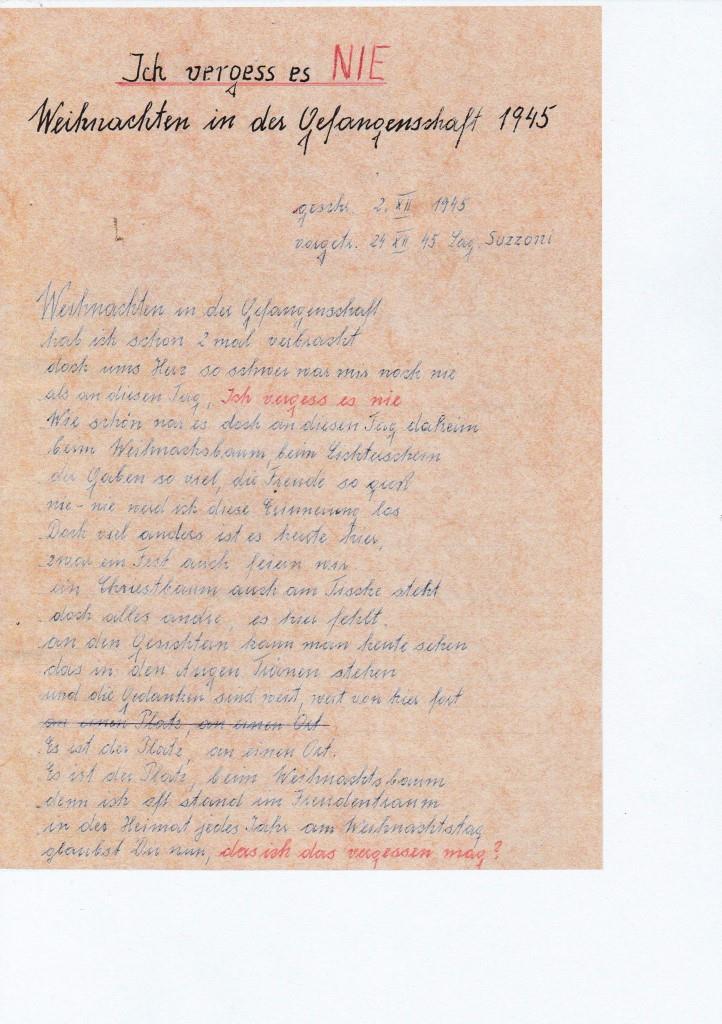 Ich vergess es NIE
Weihnachten in der Gefangenschaft 1945
geschr. 2. XII 1945
vorgetr. 24 XII 45 Lag. Suzzoni
Weihnachten in der Gefangenschaft
hab ich schon 2 mal verbracht
doch ums Herz so schwer war mir noch nie
als an diesen Tag, Ich vergess es nie
Wie schön war es doch an diesen Tag daheim
beim Weihnachsbaum, beim Lichterschein
der Gaben so viel, die Freude so groß
nie - nie werd ich diese Erinnerung los
Doch viel anders ist es heute hier,
zwar ein Fest auch feiern wir
ein Chriestbaum auch am Tische steht
doch alles andre, es hier fehlt.
an den Gesichtern kann man heute sehen
das in den Augen Tränen stehen
und die Gedanken sind weit, weit von hier fort
an einen Platz, an einen Ort
Es ist der Platz, an einen Ort.
Es ist der Platz, beim Weihnachtsbaum
denn ich oft stand im Freudentraum
in der Heimat jedes Jahr am Weihnachtstag
glaubst Du nun, das ich das vergessen mag?